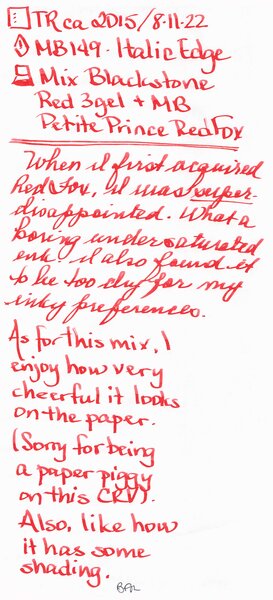 TR ca 2015/8-11-22
MB149 - Italic Edge
Mix Blackstone
Red 3gel + MB
Petite Prince Red Fox
When I first acquired
Red Fox, it was super-
disappointed. What a
boring undersaturated
ink. I also found it
to be too dry for my
inky preferences.
As for this mix, I
enjoy how very
cheerful it looks
on the paper.
(Sorry for being
a paper piggy
on this CRV).
Also, like how
it has some
shading.